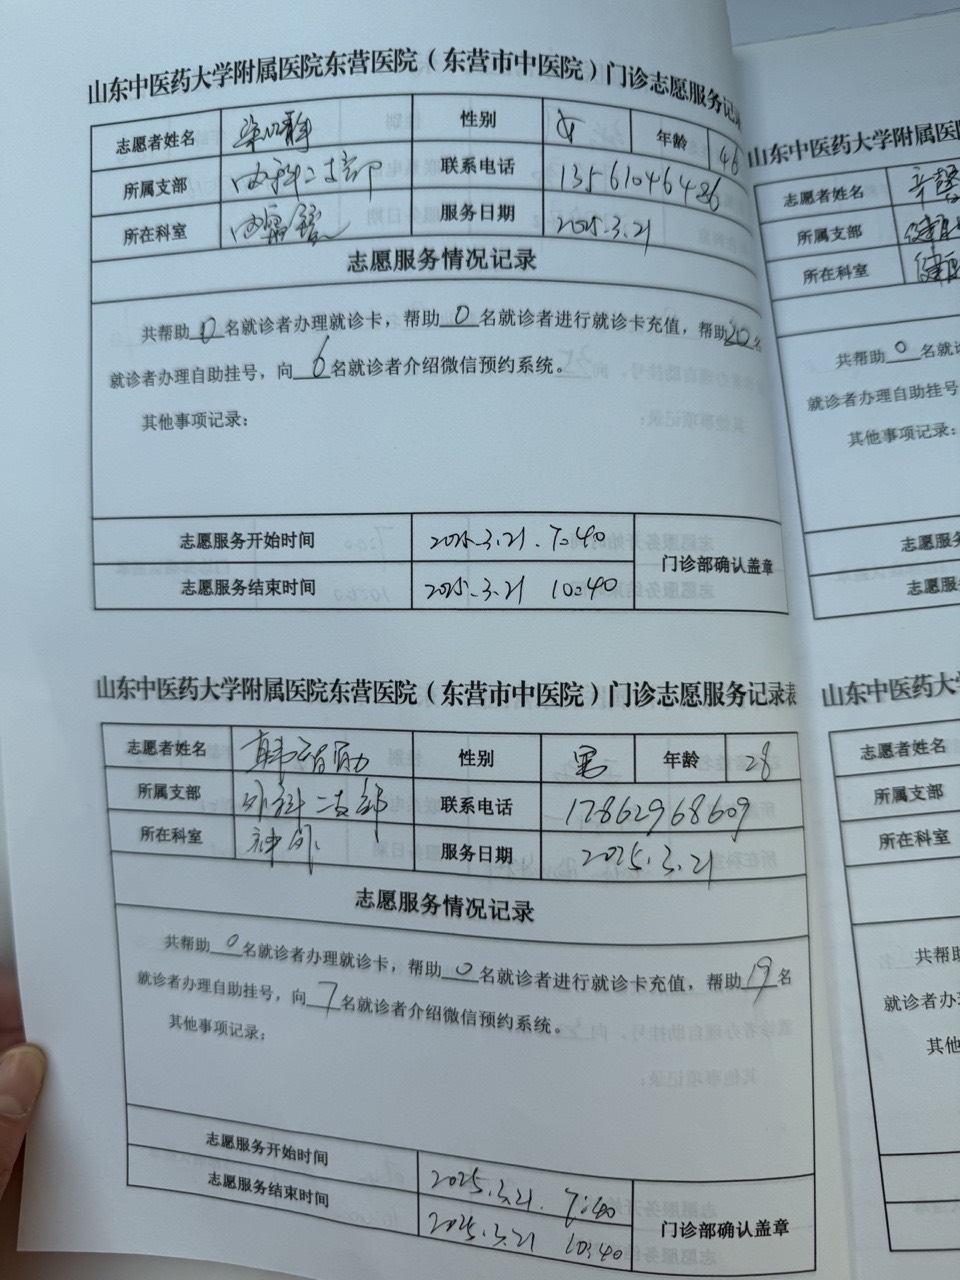 山东中医药大学附属医院东营医院（东营市中医院）门诊志愿服务记录
志愿者姓名 性别 女 年龄 46
所属支部 内科二支部 联系电话 13561046486
所在科室 服务日期 2025.3.21
志愿服务情况记录
共帮助0名就诊者办理就诊卡，帮助0名就诊者进行就诊卡充值，帮助20名
就诊者办理自助挂号，向6名就诊者介绍微信预约系统。
其他事项记录：
志愿服务开始时间 2025.3.21. 7:40
门诊部确认盖章
志愿服务结束时间 2025.3.21 10:40
山东中医药大学附属医院东营医院（东营市中医院）门诊志愿服务记录表
志愿者姓名 韩智勋 性别 男 年龄 28
所属支部 外科二支部 联系电话 17862968609
所在科室 神外 服务日期 2025.3.21
志愿服务情况记录
共帮助0名就诊者办理就诊卡，帮助0名就诊者进行就诊卡充值，帮助19名
就诊者办理自助挂号，向7名就诊者介绍微信预约系统。
其他事项记录：
志愿服务开始时间 2025.3.21. 7:40
志愿服务结束时间 2025.3.21 10:40
门诊部确认盖章
山东中医药大学附属医院
志愿者姓名
所属支部
所在科室
共帮助0名就
就诊者办理自助挂号
其他事项记录：
志愿服务
志愿服
山东中医药大学
志愿者姓名
所属支部
所在科室
共帮助
就诊者办
其他